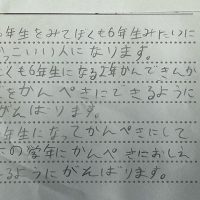 年生をみてぼくも6年生みたいに
っこいい人になります。
くも6年生になる2年かんでさんか
をかんぺきにできるように
がんばります。
年生になってかんぺきにして
の学年にかんぺきにおしえ
るようにがんばります。